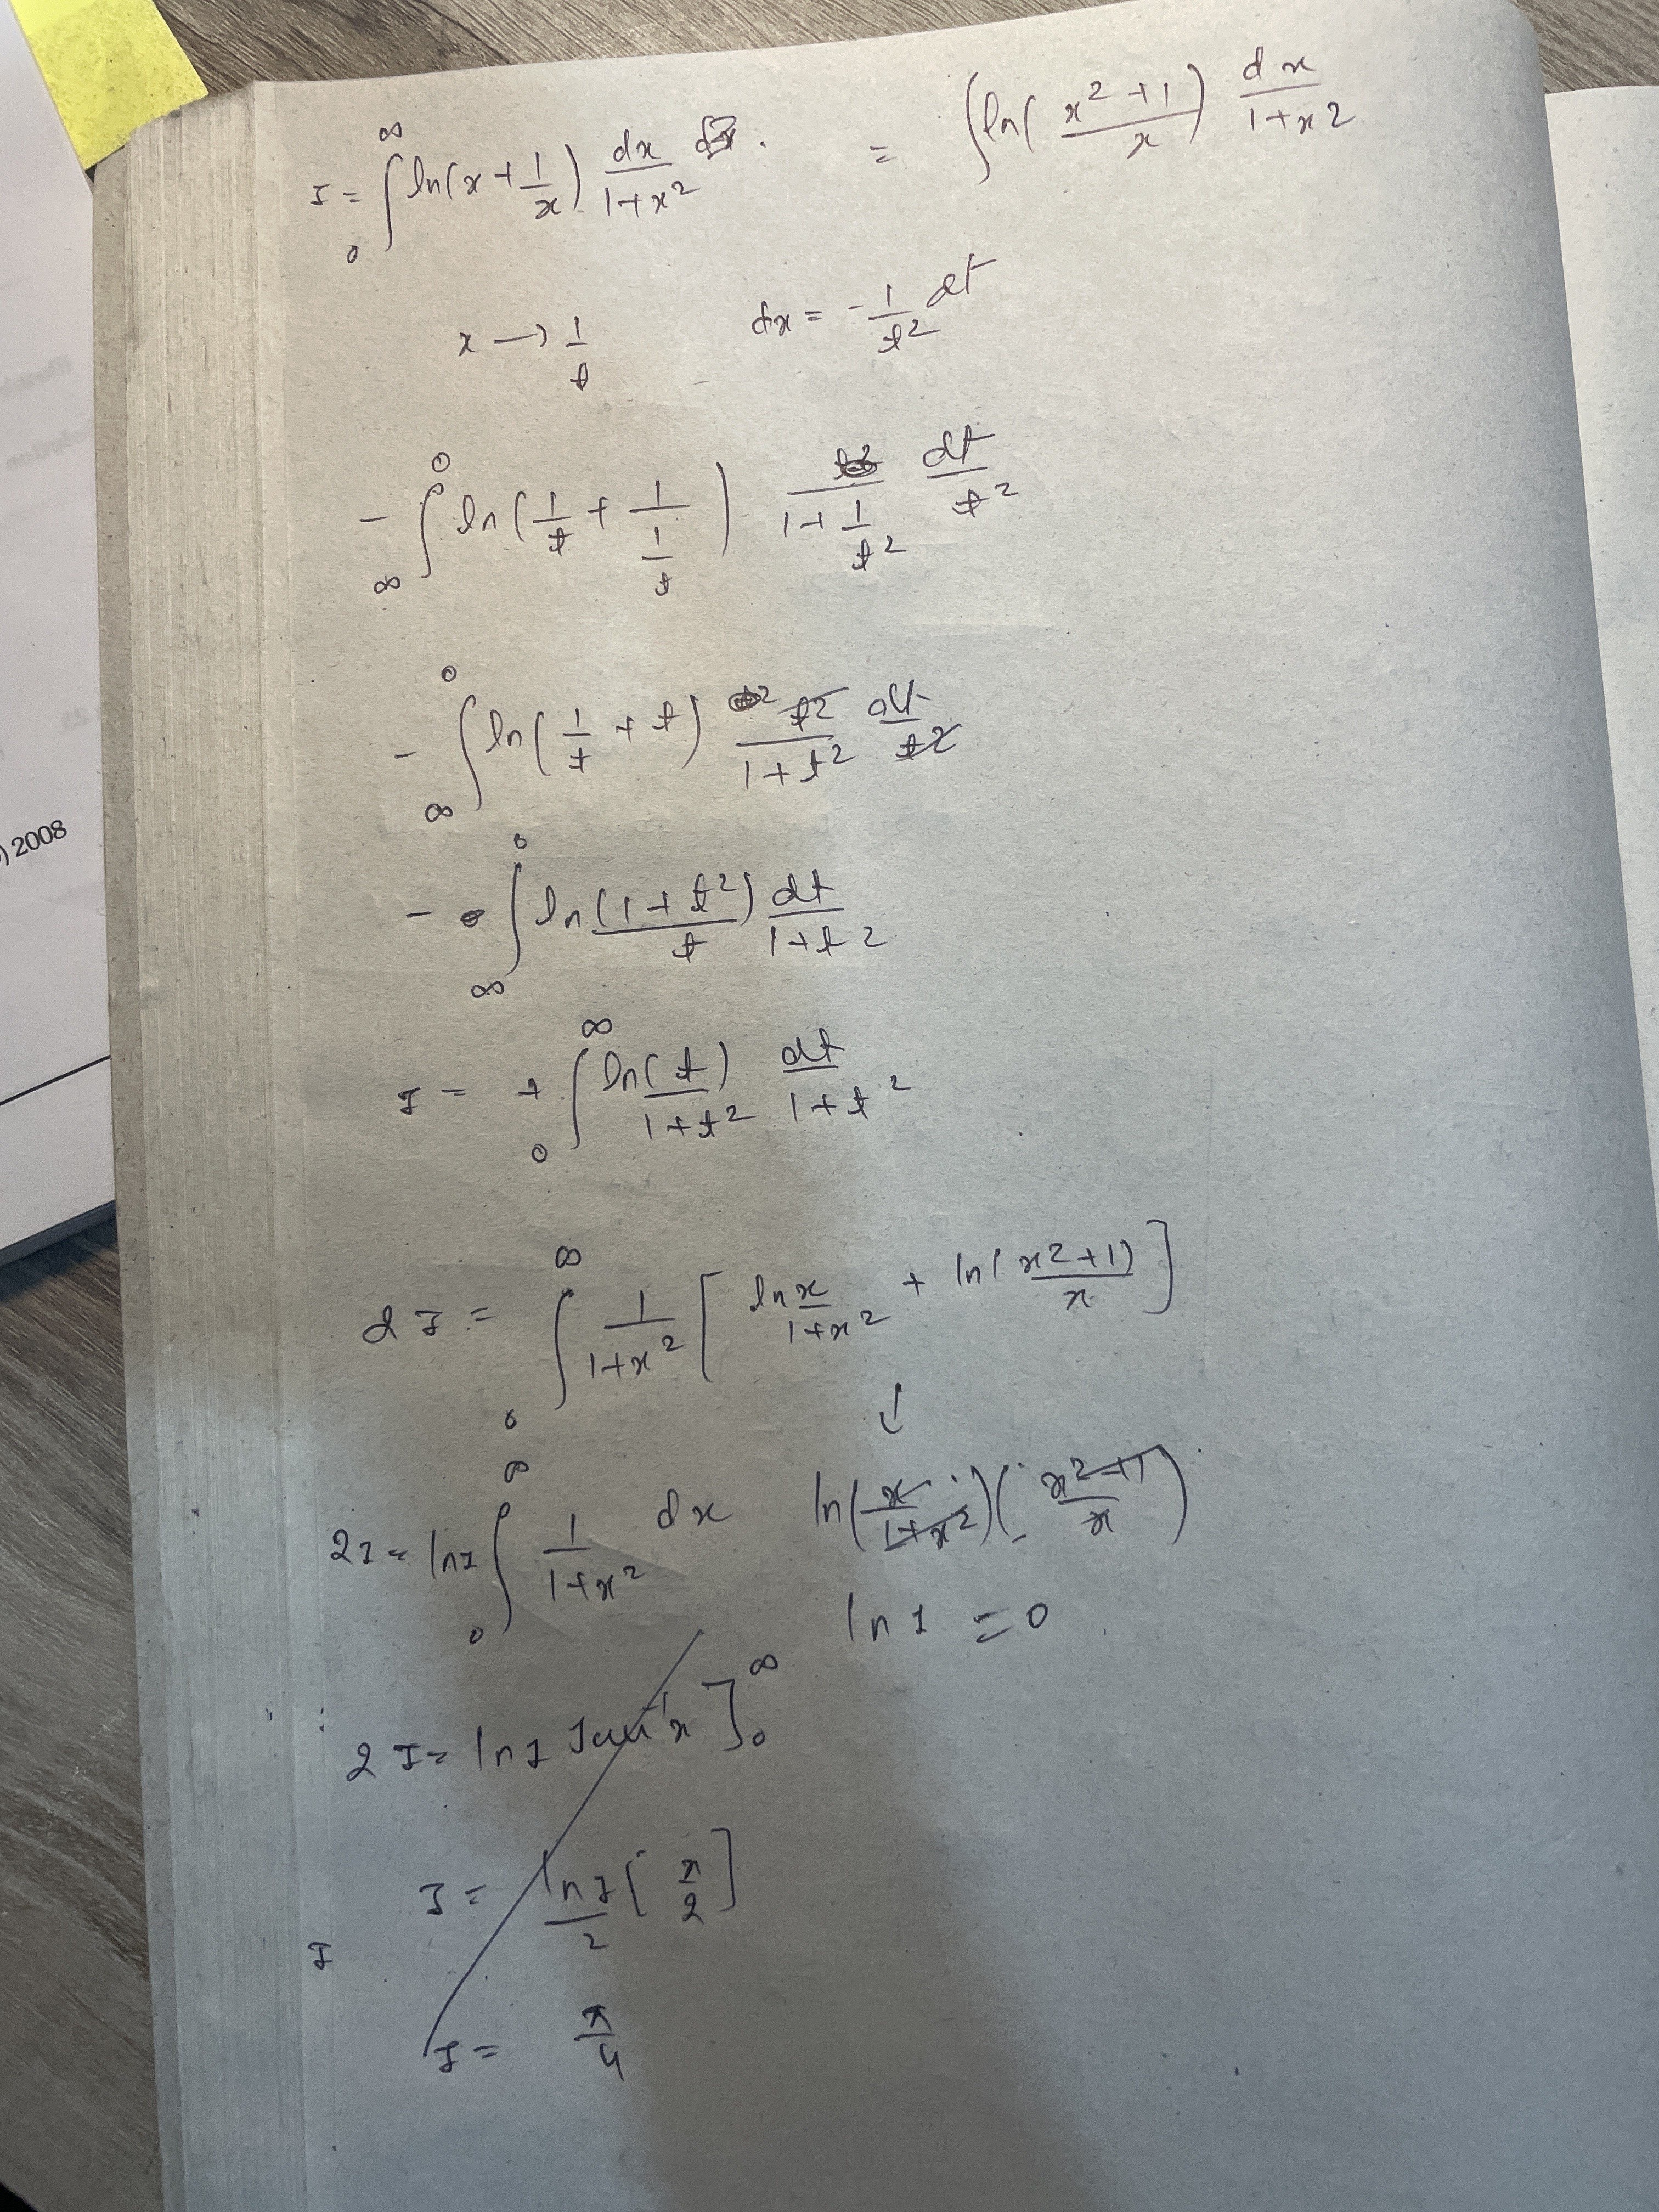 I = ∫₀^∞ ln(x + 1/x) dx/(1+x²) . = ∫ ln((x²+1)/x) dx/(1+x²)
x → 1/t dx = -1/t² dt
- ∫_∞^0 ln(1/t + 1/(1/t)) 1/(1+1/t²) dt/t²
- ∫_∞^0 ln(1/t + t) t²/(1+t²) dt/t²
) 2008
- ∫_∞^0 ln((1+t²)/t) dt/(1+t²)
I = + ∫₀^∞ ln(t/(1+t²)) dt/(1+t²)
2I = ∫₀^∞ 1/(1+x²) [ln x/(1+x²) + ln((x²+1)/x)]
↓
2I = ln1 ∫₀^∞ 1/(1+x²) dx ln(x/(1+x²))((x²+1)/x)
ln 1 = 0
2I = ln1 Tan⁻¹x]₀^∞
I = ln1/2 [π/2]
I
I = π/4